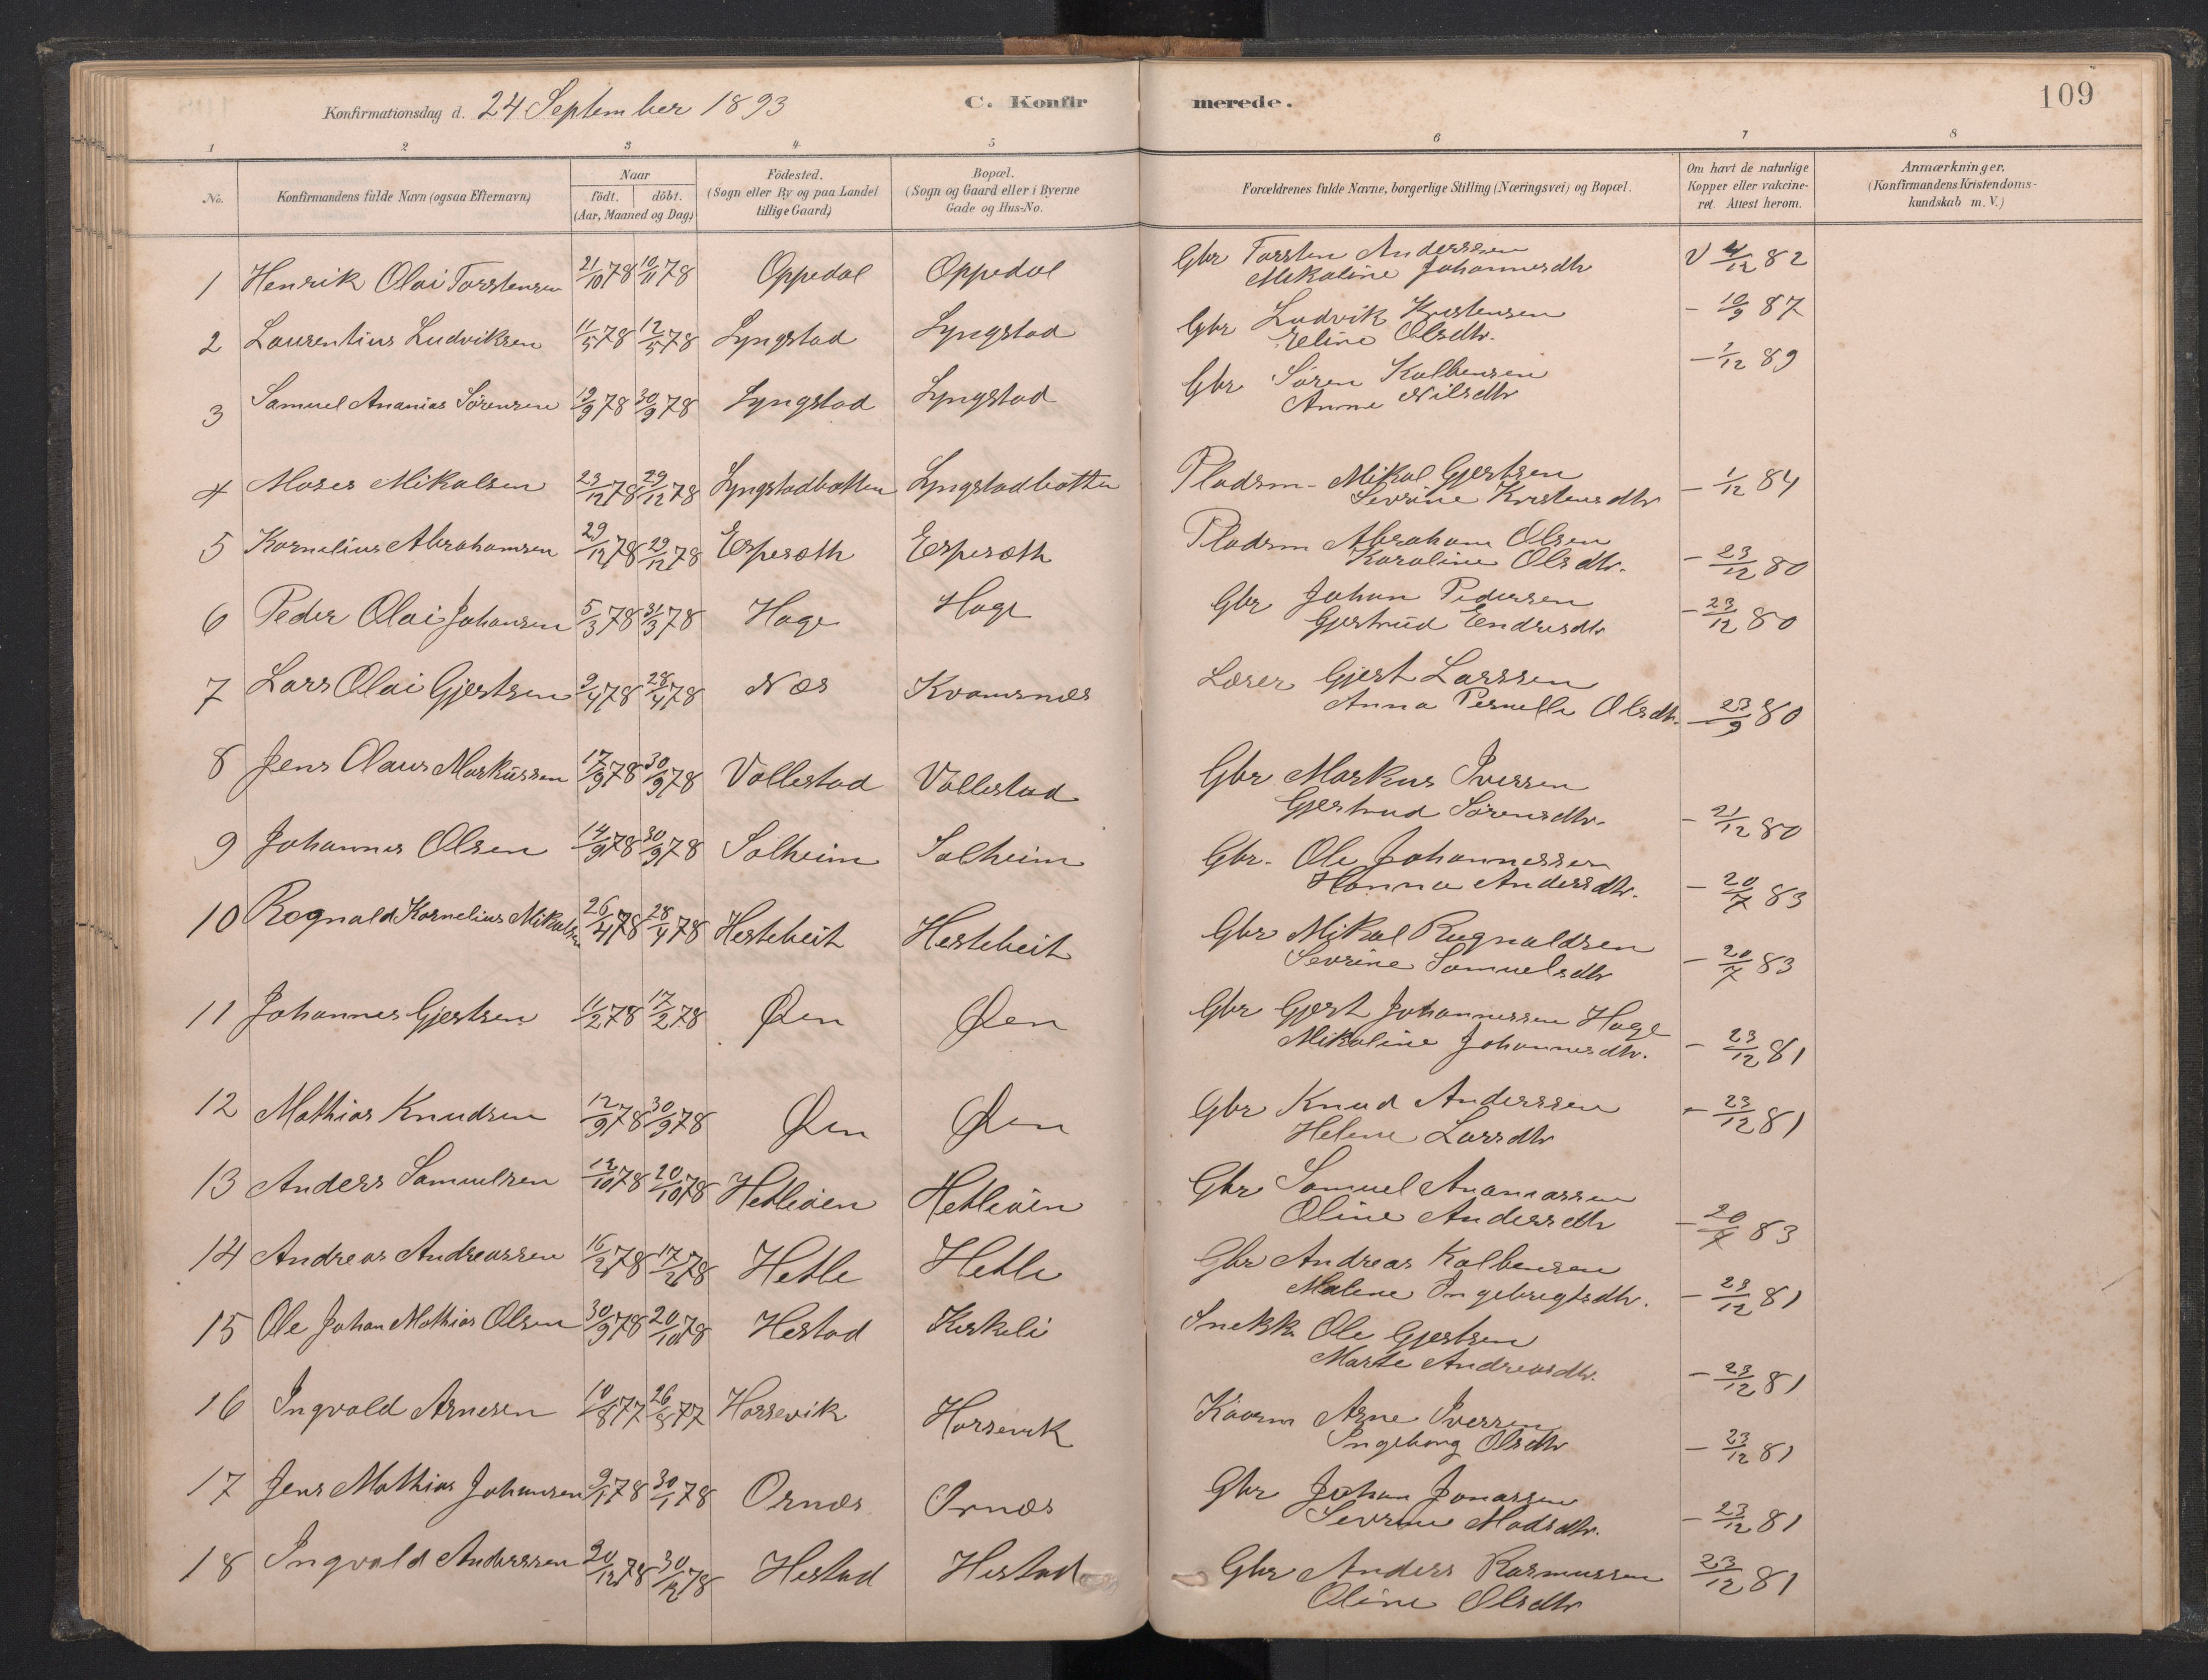 Konfirmationsdag d. 24 September 1893 C. Konfir merede. 109
1 2 3 4 5 6 7 8
No. Konfirmandens fulde Navn (ogsaa Efternavn) Naar födt. döbt. (Aar, Maaned og Dag) Födested. (Sogn eller By og paa Landet tillige Gaard) Bopæl. (Sogn og Gaard eller i Byerne Gade og Hus-No. Forældrenes fulde Navne, borgerlige Stilling (Næringsvei) og Bopæl. Om havt de naturlige Kopper eller vakcineret. Attest herom. Anmærkninger. (Konfirmandens Kristendomskundskab m. V.)
1 Henrik Olai Torstensen 21/10 78 10/11 78 Oppedal Oppedal Gbr Torsten Anderssen V 4/12 82
Mikaline Johannesdtr
2 Laurentius Ludviksen 11/5 78 12/5 78 Lyngstad Lyngstad Gbr Ludvik Kristensen - 10/9 87
Eline Olsdtr.
3 Samuel Ananias Sörensen 13/9 78 30/9 78 Lyngstad Lyngstad Gbr Sören Kolbensen - 1/12 89
Anne Nilsdtr
4 Moses Mikalsen 23/12 78 29/12 78 Lyngstadbotten Lyngstadbotten Pladsm - Mikal Gjertsen - 1/12 84
Sevrine Kristensdtr
5 Kornelius Abrahamsen 29/12 78 29/12 78 Esperæth Esperæth Pladsm Abraham Olsen - 23/12 80
Karoline Olsdtr.
6 Peder Olai Johansen 5/3 78 31/3 78 Hage Hage Gbr Johan Pedersen - 23/12 80
Gjertrud Endresdtr
7 Lars Olai Gjertsen 9/4 78 28/4 78 Næs Kvamsnæs Lærer Gjert Larssen
Anna Pernelle Olsdtr. - 23/9 80
8 Jens Olaus Markussen 17/9 78 30/9 78 Vallestad Vallestad Gbr Markus Iverssen
Gjertrud Sörensdtr. - 21/12 80
9 Johannes Olsen 14/9 78 30/9 78 Solheim Solheim Gbr. Ole Johannessen
Hanna Andersdtr. - 20/7 83
10 Rognald Kornelius Mikalsen 26/4 78 28/4 78 Hestebeit Hestebeit Gbr Mikal Rognaldsen
Sevrine Samuelsdtr - 20/7 83
11 Johannes Gjertsen 11/2 78 17/2 78 Øen Øen Gbr Gjert Johannessen Hage
Mikaline Johannesdtr. - 23/12 81
12 Mathias Knudsen 12/9 78 30/9 78 Øen Øen Gbr Knud Anderssen - 23/12 81
Helene Larsdtr
13 Anders Samuelsen 12/10 78 20/10 78 Hetleöen Hetleöen Gbr Samuel Ananiassen
Oline Andersdtr - 20/7 83
14 Andreas Andreassen 16/2 78 17/2 78 Hetle Hetle Gbr Andreas Kolbensen
Malene Ingebregtsdtr. - 23/12 81
15 Ole Johan Mathias Olsen 30/9 78 20/10 78 Hestad Kirkeli Snekk. Ole Gjertsen
Marte Andreasdtr. - 23/12 81
16 Ingvald Arnesen 10/8 77 26/8 77 Horsevik Horsevik Kaarm Arne Iverssen
Ingeborg Olsdtr - 23/12 81
17 Jens Mathias Johansen 9/1 78 30/1 78 Ornæs Ornæs Gbr Johan Jonassen
Sevrine Madsdtr. - 23/12 81
18 Ingvald Anderssen 20/12 78 30/12 78 Hestad Hestad Gbr Anders Rasmussen 23/12 81
Oline Olsdtr